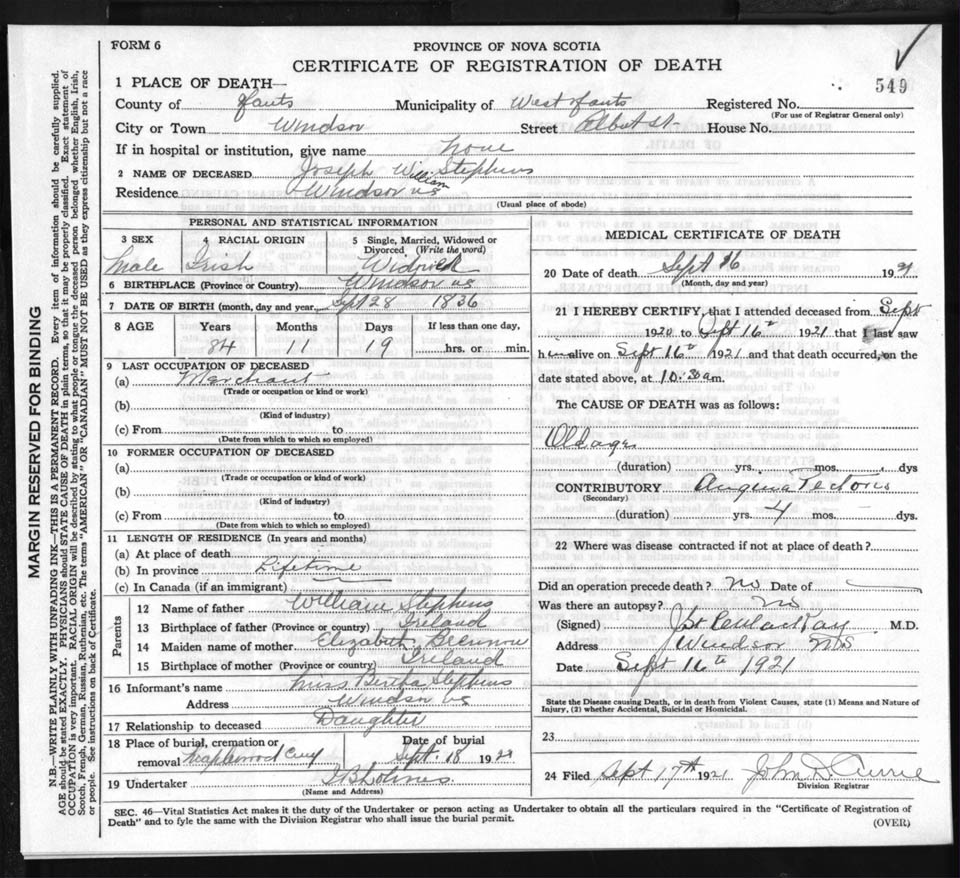 FORM 6
PROVINCE OF NOVA SCOTIA
CERTIFICATE OF REGISTRATION OF DEATH
549
1 PLACE OF DEATH—
County of Hants Municipality of West Hants Registered No.
(For use of Registrar General only)
City or Town Windsor Street Albert St. House No.
If in hospital or institution, give name None
2 NAME OF DECEASED Joseph William Stephens
Residence Windsor NS
(Usual place of abode)
PERSONAL AND STATISTICAL INFORMATION
3 SEX 4 RACIAL ORIGIN 5 Single, Married, Widowed or Divorced (Write the word)
Male Irish
6 BIRTHPLACE (Province or Country) Windsor NS
7 DATE OF BIRTH (month, day and year) Sept 28 1836
8 AGE Years Months Days If less than one day,
84 11 19 hrs. or min.
9 LAST OCCUPATION OF DECEASED
(a) Merchant
(Trade or occupation or kind or work)
(b)
(Kind of industry)
(c) From to
(Date from which to which so employed)
10 FORMER OCCUPATION OF DECEASED
(a)
(Trade or occupation or kind or work)
(b)
(Kind of industry)
(c) From to
(Date from which to which so employed)
11 LENGTH OF RESIDENCE (In years and months)
(a) At place of death
(b) In province Lifetime
(c) In Canada (if an immigrant)
Parents
12 Name of father William Stephens
13 Birthplace of father (Province or country) Ireland
14 Maiden name of mother Elizabeth
15 Birthplace of mother (Province or country) Ireland
16 Informant's name Miss Bertha Stephens
Address Windsor NS
17 Relationship to deceased Daughter
18 Place of burial, cremation or removal Maplewood Cemy Date of burial Sept. 18 192
19 Undertaker Holmes
(Name and Address)
MEDICAL CERTIFICATE OF DEATH
20 Date of death Sept 16 1921
(Month, day and year)
21 I HEREBY CERTIFY, that I attended deceased from Sept
1920 to Sept 16th 1921 that I last saw
him alive on Sept 16th 1921 and that death occurred, on the
date stated above, at 10.30 a.m.
The CAUSE OF DEATH was as follows:
Old age
(duration) yrs. mos. dys
CONTRIBUTORY Angina Pectoris
(Secondary)
(duration) yrs. 4 mos. dys.
22 Where was disease contracted if not at place of death?
Did an operation precede death? No Date of
Was there an autopsy? No
(Signed) M.D.
Address Windsor NS
Date Sept 16th 1921
State the Disease causing Death, or in death from Violent Causes, state (1) Means and Nature of
Injury, (2) whether Accidental, Suicidal or Homicidal.
23
24 Filed Sept 17th 1921 John D Currie
Division Registrar
SEC. 46—Vital Statistics Act makes it the duty of the Undertaker or person acting as Undertaker to obtain all the particulars required in the "Certificate of Registration of
Death" and to fyle the same with the Division Registrar who shall issue the burial permit.
(OVER)
MARGIN RESERVED FOR BINDING
N.B.—WRITE PLAINLY WITH UNFADING INK—THIS IS A PERMANENT RECORD. Every item of information should be carefully supplied.
AGE should be stated EXACTLY. PHYSICIANS should STATE CAUSE OF DEATH in plain terms, so that it may be properly classified. Exact statement of
OCCUPATION is very important. RACIAL ORIGIN will be described by stating to what people or tongue the deceased person belonged whether English, Irish,
Scotch, French, German, Russian, Ruthenian, etc. The terms "AMERICAN" OR "CANADIAN" MUST NOT BE USED as they express citizenship but not a race
or people. See instructions on back of Certificate.